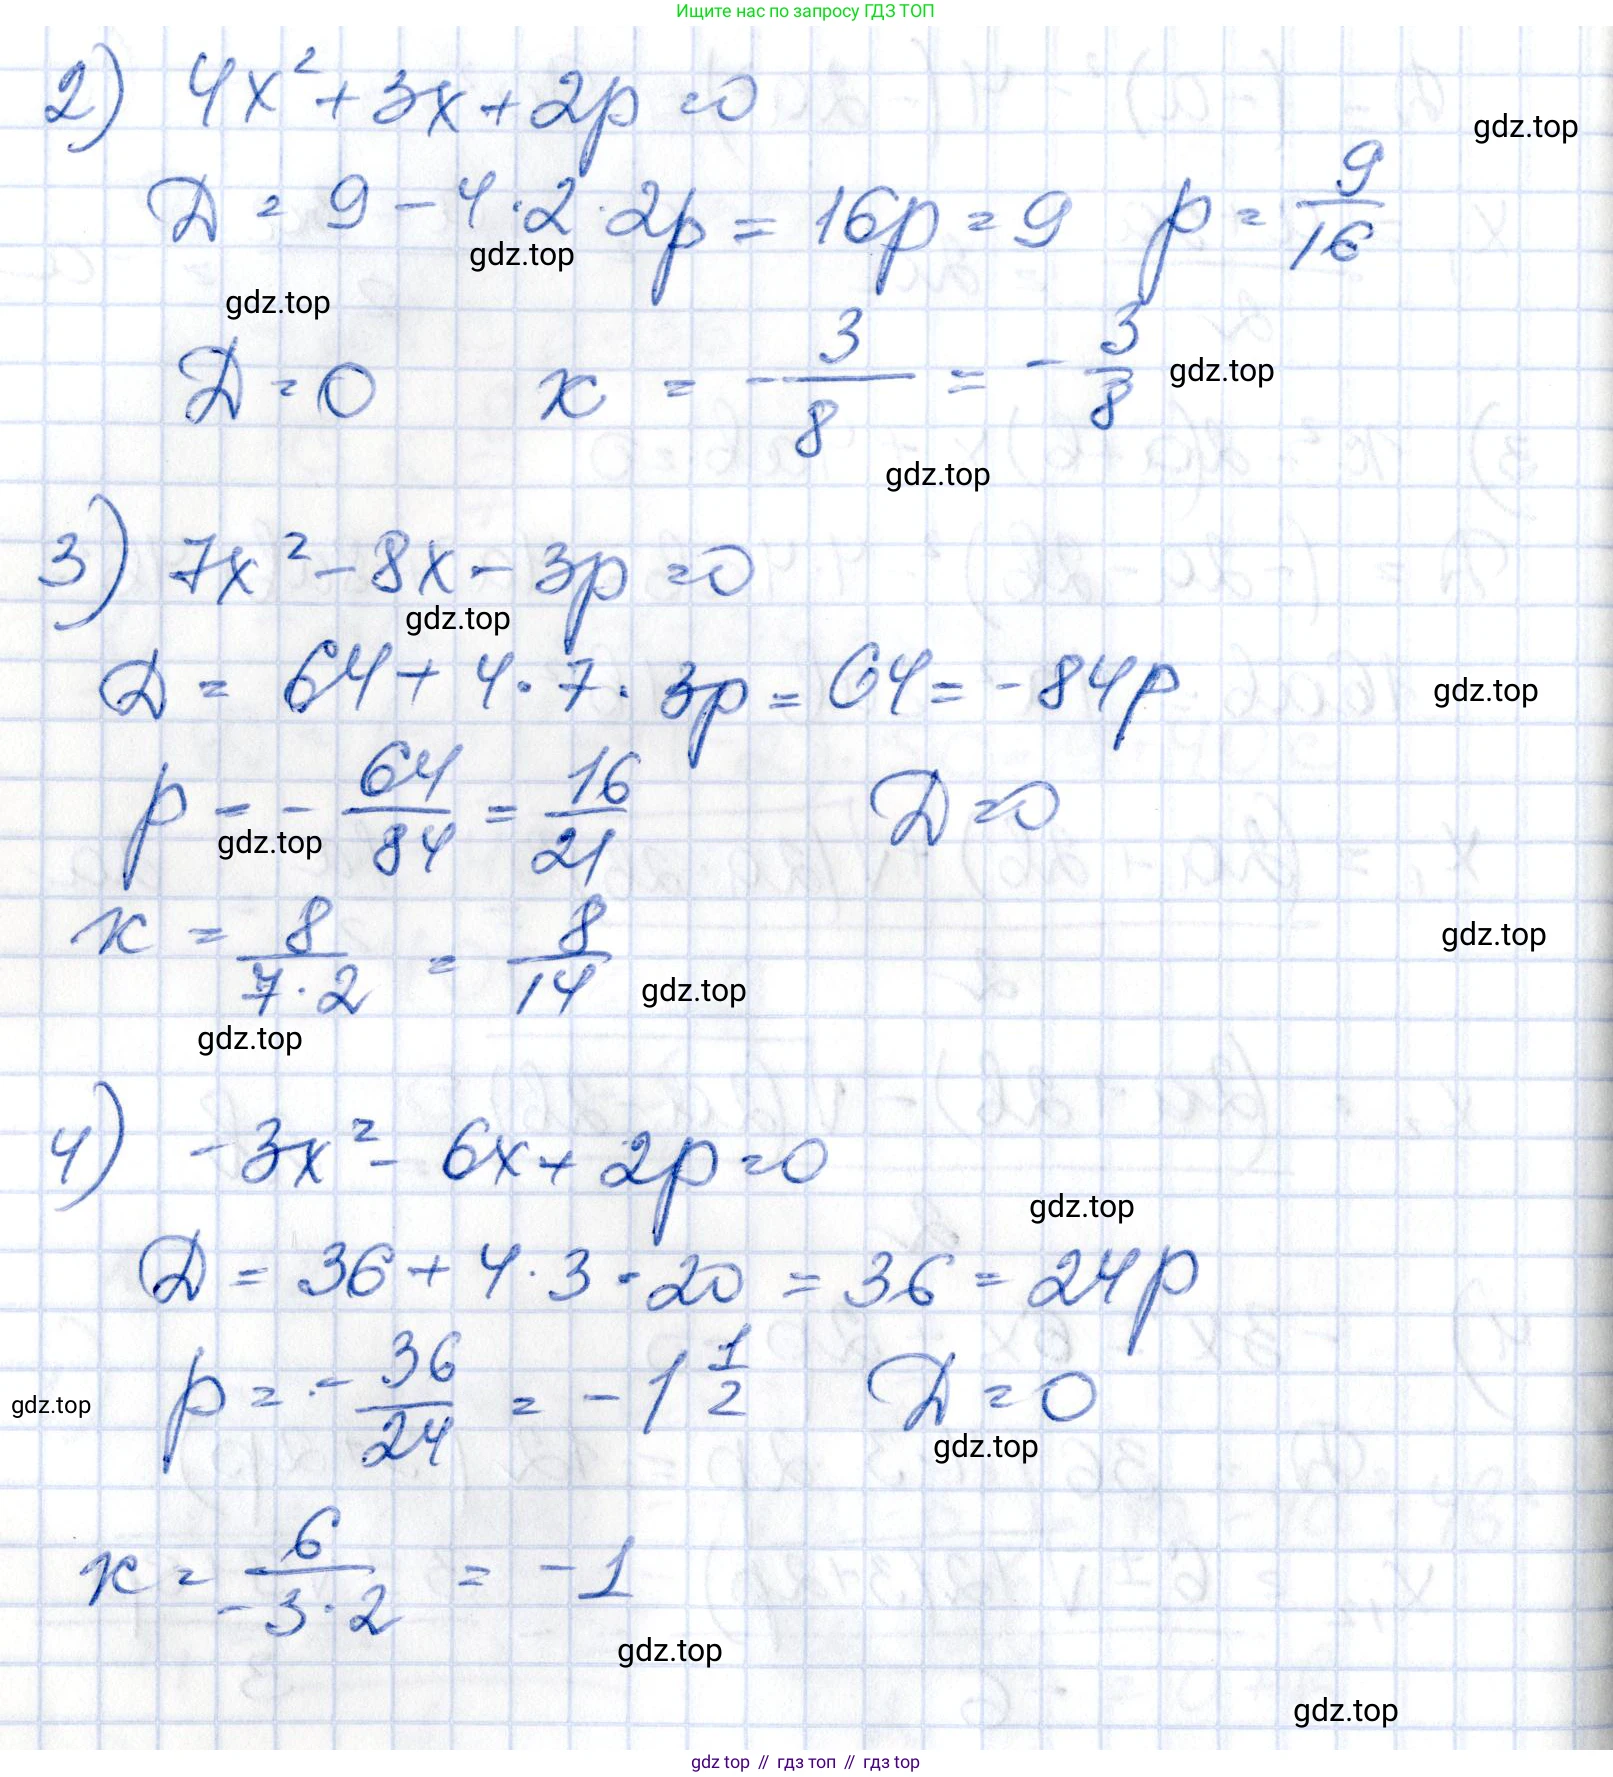 Ищите нас по запросу ГДЗ ТОП
2) 4x² + 3x + 2p = 0
gdz.top
D = 9 - 4 · 2 · 2p = 16p = 9 p = 9/16
gdz.top
gdz.top
D = 0 x = -3/8 = -3/8
gdz.top
gdz.top
3) 7x² - 8x - 3p = 0
gdz.top
D = 64 + 4 · 7 · 3p = 64 = -84p
gdz.top
p = -64/84 = 16/21 D = 0
gdz.top
x = 8/(7 · 2) = 8/14
gdz.top
gdz.top
gdz.top
4) -3x² - 6x + 2p = 0
gdz.top
D = 36 + 4 · 3 · 20 = 36 = 24p
p = -36/24 = -1 1/2 D = 0
gdz.top
gdz.top
x = 6/(-3 · 2) = -1
gdz.top
gdz.top
gdz top // гдз топ // гдз top